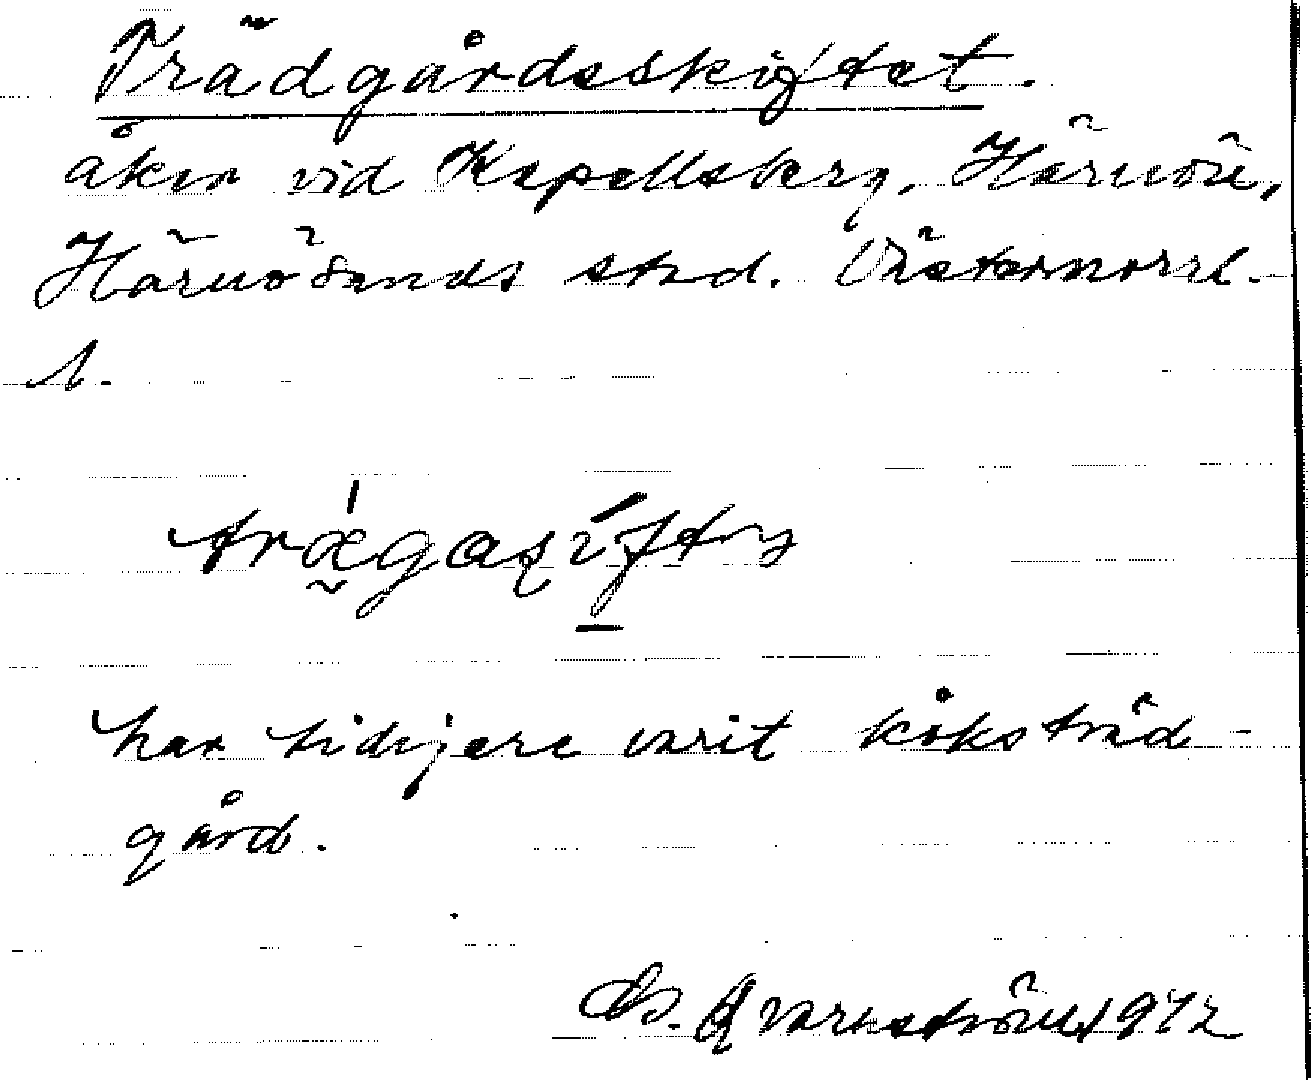 Trädgårdsskiftet.
åker vid Kapellsberg, Härnön,
Härnösands stad. Västernorrl.
l.
har tidigare varit köksträd-
gård.
Qvarnström 1972